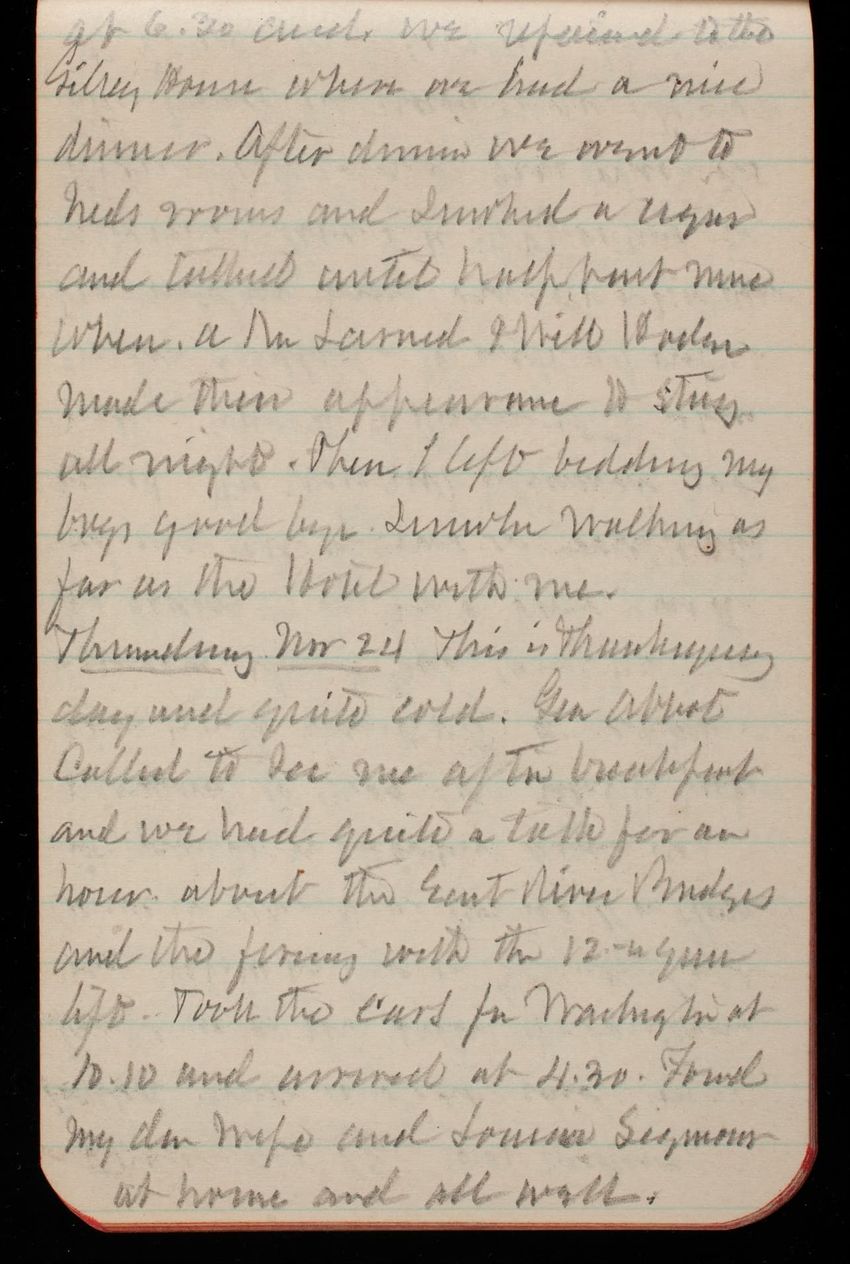 at 6.30 and we repaired to the
Gilsey House where we had a nice
dinner. After dinner we went to
Neds rooms and smoked a cigar
and talked until half past nine
when. a Mr Larned & Will
made their appearance to stay
all night. Then I left bidding my
boys good bye. Lincoln walking as
far as the Hotel with me.
Thursday Nov 24 This is Thanksgiving
day and quite cold. Gen Abbot
Called to see me after breakfast
and we had quite a talk for an
hour about the East River Bridges
and the firing with the 12 in gun
left. Took the cars for Washington at
10.10 and arrived at 4.30. Found
my dear wife and Louisa Seymour
at home and all well.